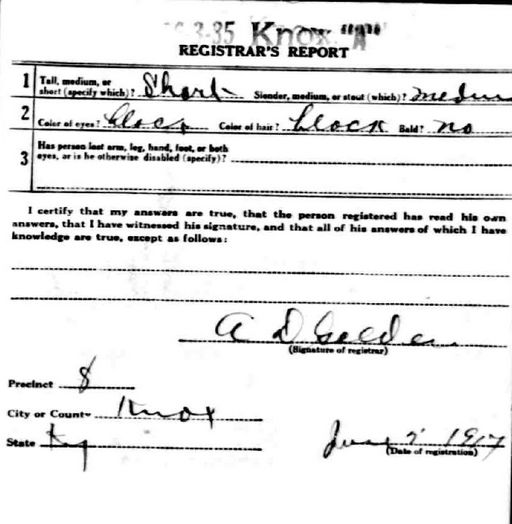 3-35 Knox "A"
REGISTRAR'S REPORT
1 Tall, medium, or short (specify which)? Short Slender, medium, or stout (which)? medium
2 Color of eyes? black Color of hair? black Bald? no
3 Has person lost arm, leg, hand, foot, or both
eyes, or is he otherwise disabled (specify)?
I certify that my answers are true, that the person registered has read his own
answers, that I have witnessed his signature, and that all of his answers of which I have
knowledge are true, except as follows:
A D Golden
(Signature of registrar)
Precinct 8
City or County Knox
State Ky
June 1917
(Date of registration)